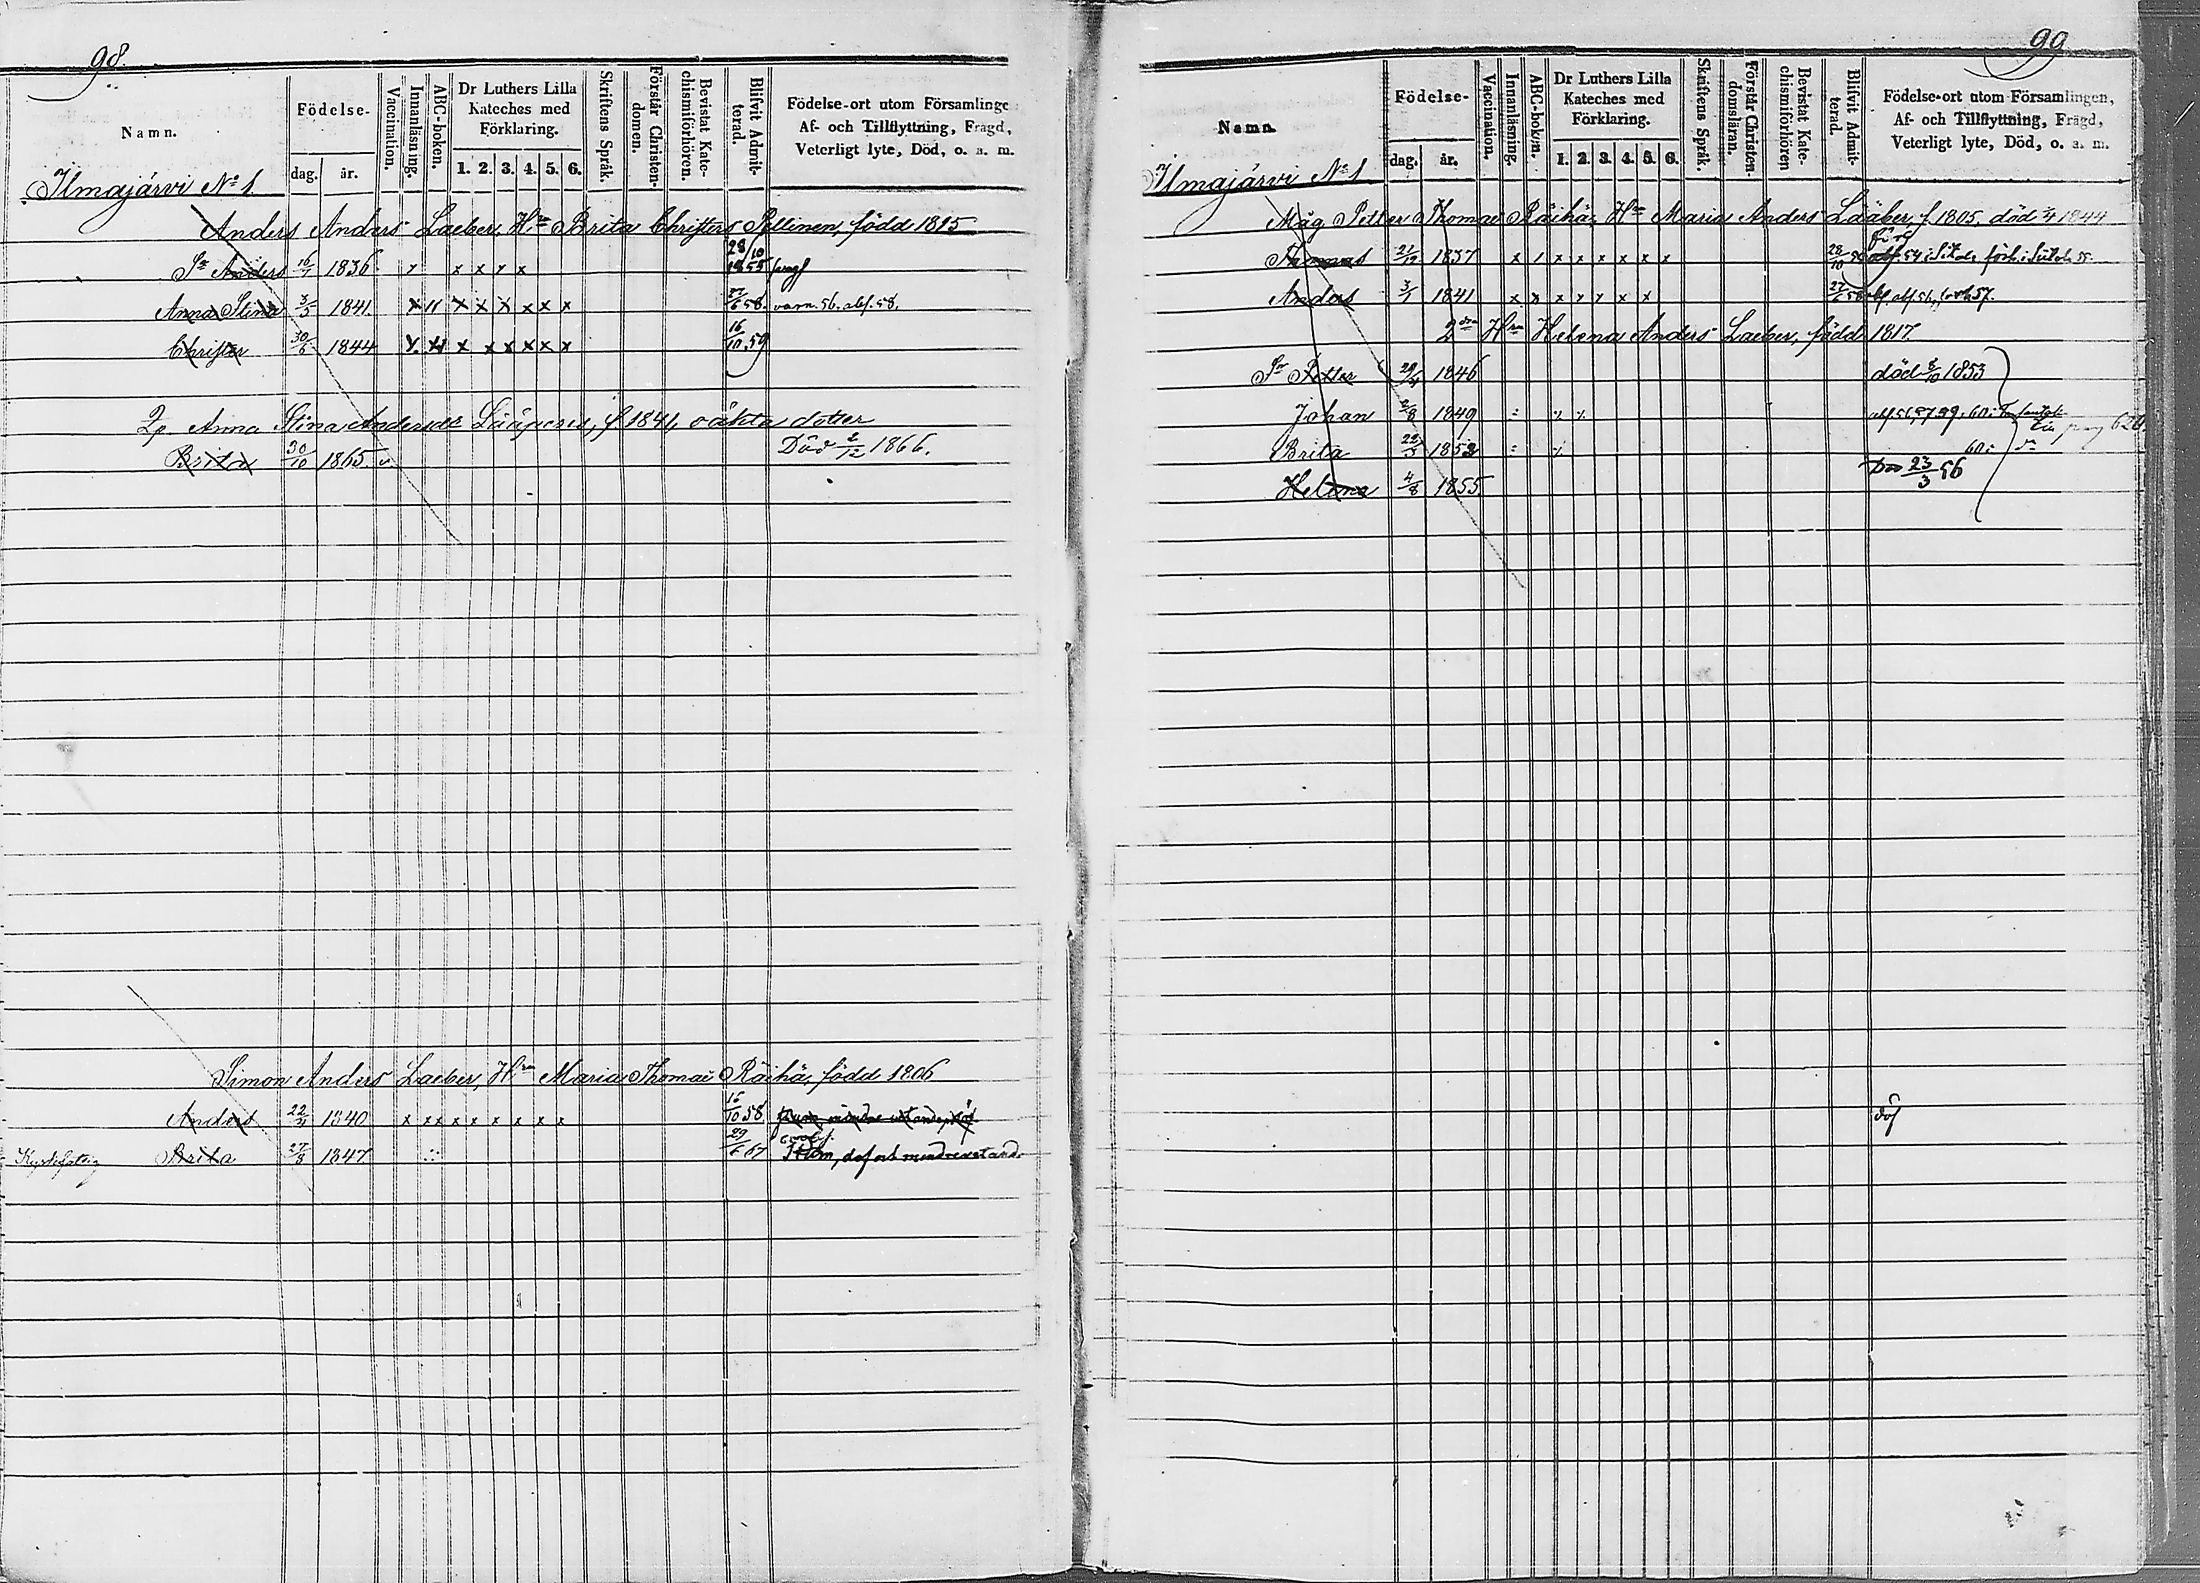 98.
Namn.
Födelse-
dag. år.
Vaccination.
Innanläsning.
ABC-boken.
Dr Luthers Lilla
Kateches med
Förklaring.
1. 2. 3. 4. 5. 6.
Skriftens Språk.
Förstår Christen-
domen.
Bevistat Kate-
chismiförhören.
Blifvit Admit-
terad.
Födelse-ort utom Försam­linge
Af- och Tillflyttning, Fragd,
Veterligt lyte, Död, o. a. m.
Ilmajärvi No 1.
Anders Anders Laeber, Hru Brita Christers Pellinen, född 1815
Sr Anders 16/1 1836 x x x x x 28/10 1855
Anna Stina 3/5 1841 x 11 x x x x x x 27/6 58. varn. 56. abs. 58.
Christer 30/6 1844 x x x x x x x x 16/10 59
Anna Stina Andersdr Lääperis, f 1841, oäkta dotter
Brita 30/10 1865. v. Död 2/12 1866.
Simon Anders Laeber, Hru Maria Thomae Räihä, född 1806
Anders 22/4 1840 x xx x x x x x x 16/10 58
Brita 27/8 1847 29/6 67 Idem, döf och mindre vetande
99
Namn.
Födelse-
dag. år.
Vaccination.
Innanläsning.
ABC-boken.
Dr Luthers Lilla
Kateches med
Förklaring.
1. 2. 3. 4. 5. 6.
Skriftens Språk.
Förstår Christen-
domsläran.
Bevistat Kate-
chismiförhören
Blifvit Admit-
terad.
Födelse-ort utom Församlingen,
Af- och Tillflyttning, Frägd,
Veterligt lyte, Död, o. a. m.
Ilmajärvi No 1
Måg Petter Thomae Räihä, Hru Maria Anders Lääber, f. 1805, död 1844
Thomas 21/12 1837 x 1 x x x x x x 28/10
Anders 3/1 1841 x x x x x x x 27/6 58
2dra Hru Helena Anders Laeber, född 1817.
Sr Petter 1846 död 1853
Johan 2/8 1849
Brita 22/3 1852 60.
Helena 4/8 1855 Död 23/3 56
döf